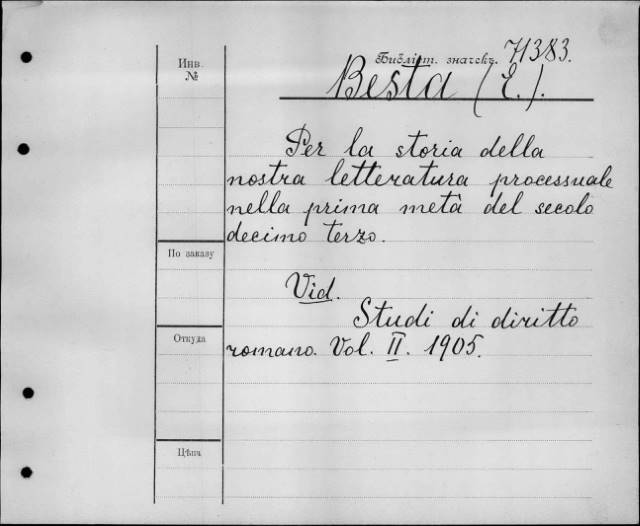 Инв. №
Библіот. значекъ. 71383.
Besta (E.).
Per la storia della
nostra letteratura processuale
nella prima metà del secolo
decimo terzo.
По заказу
Vid.
Studi di diritto
Откуда
romano. Vol. II. 1905.
Цѣна